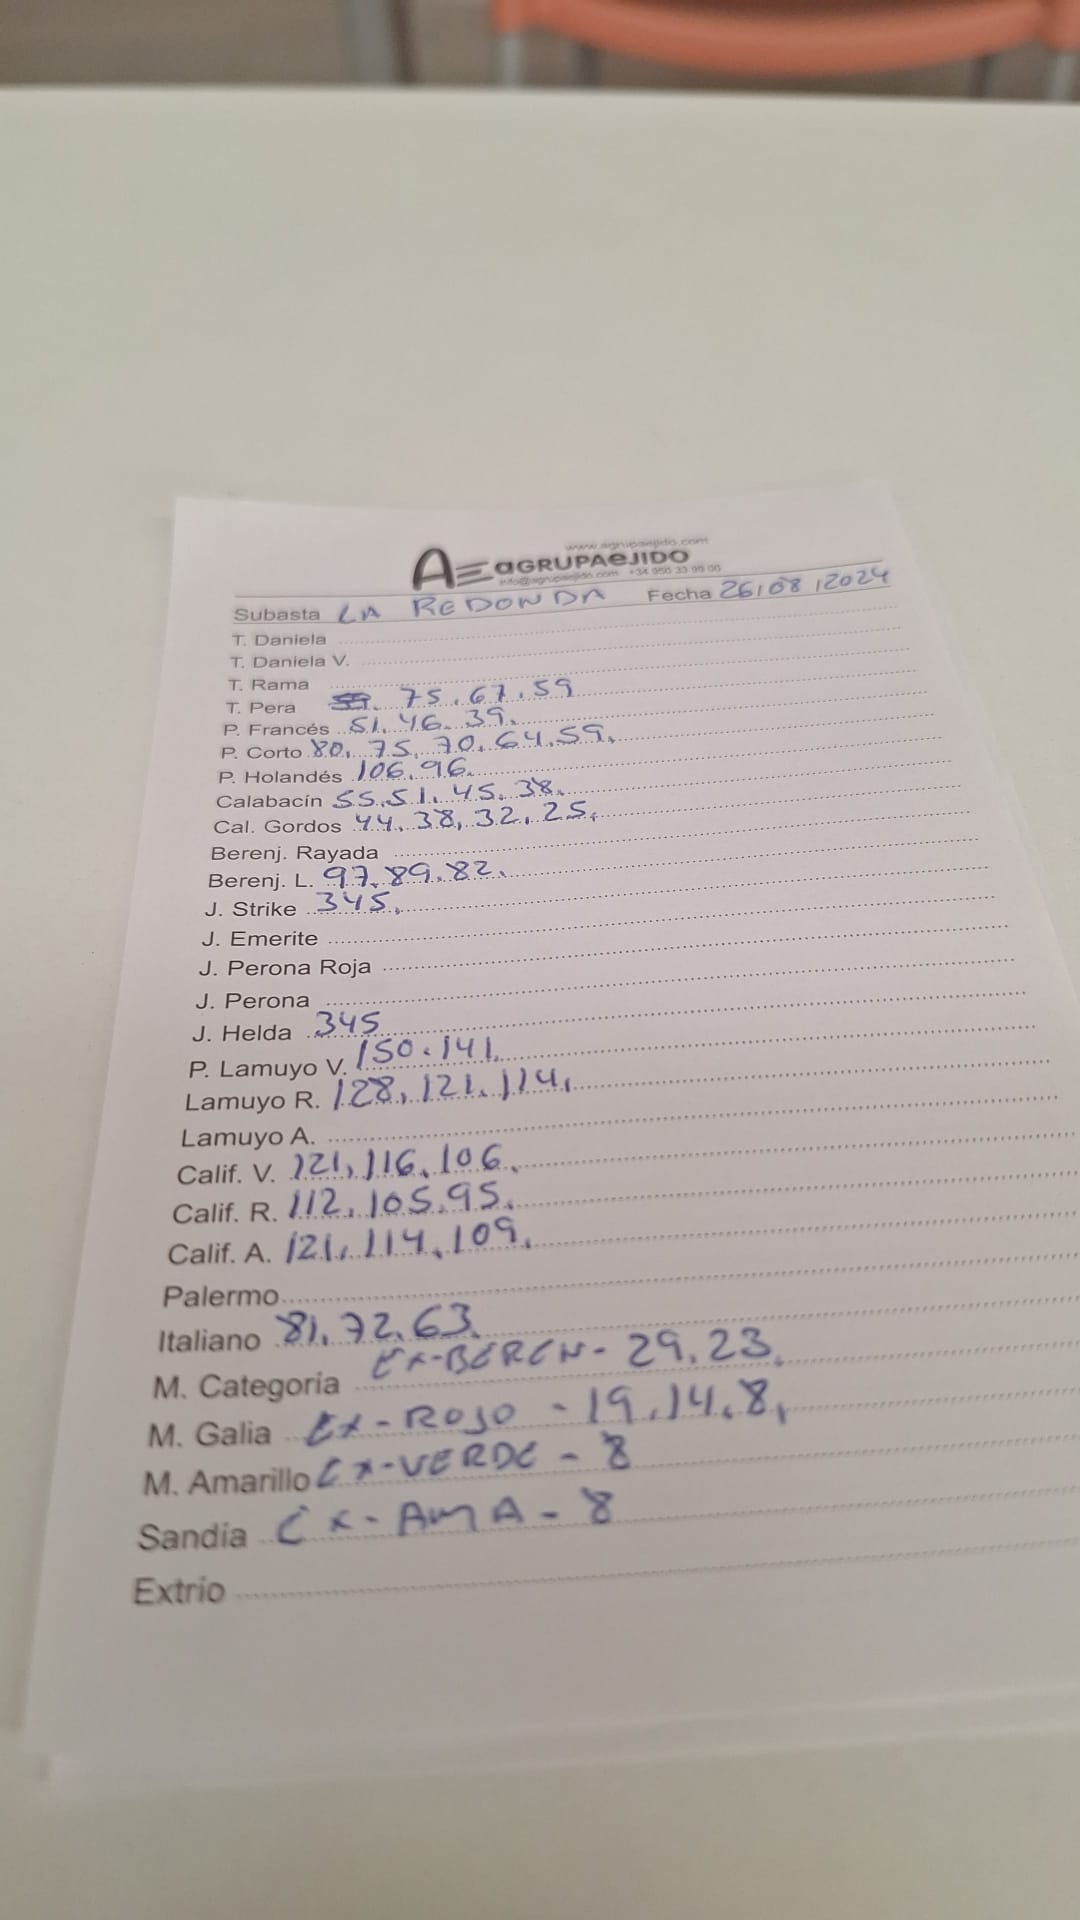 www.agrupaejido.com
AE aGRUPAeJIDO
info@agrupaejido.com +34 950 33 99 00
Subasta LA REDONDA Fecha 26/08/2024
T. Daniela
T. Daniela V.
T. Rama
T. Pera 75, 67, 59
P. Francés 51, 46, 39,
P. Corto 80, 75, 70, 64, 59,
P. Holandés 106, 96,
Calabacín 55, 51, 45, 38,
Cal. Gordos 44, 38, 32, 25,
Berenj. Rayada
Berenj. L. 97, 89, 82,
J. Strike 345,
J. Emerite
J. Perona Roja
J. Perona
J. Helda 345
P. Lamuyo V. 150, 141,
Lamuyo R. 128, 121, 114,
Lamuyo A.
Calif. V. 121, 116, 106,
Calif. R. 112, 105, 95,
Calif. A. 121, 114, 109,
Palermo
Italiano 81, 72, 63,
M. Categoría EX-BEREN- 29, 23,
M. Galia EX-ROJO - 19, 14, 8,
M. Amarillo EX-VERDE - 8
Sandía EX- AMA - 8
Extrio